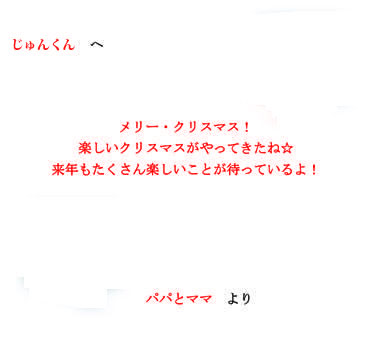 じゅんくん　へ
メリー・クリスマス！
楽しいクリスマスがやってきたね☆
来年もたくさん楽しいことが待っているよ！
パパとママ　より